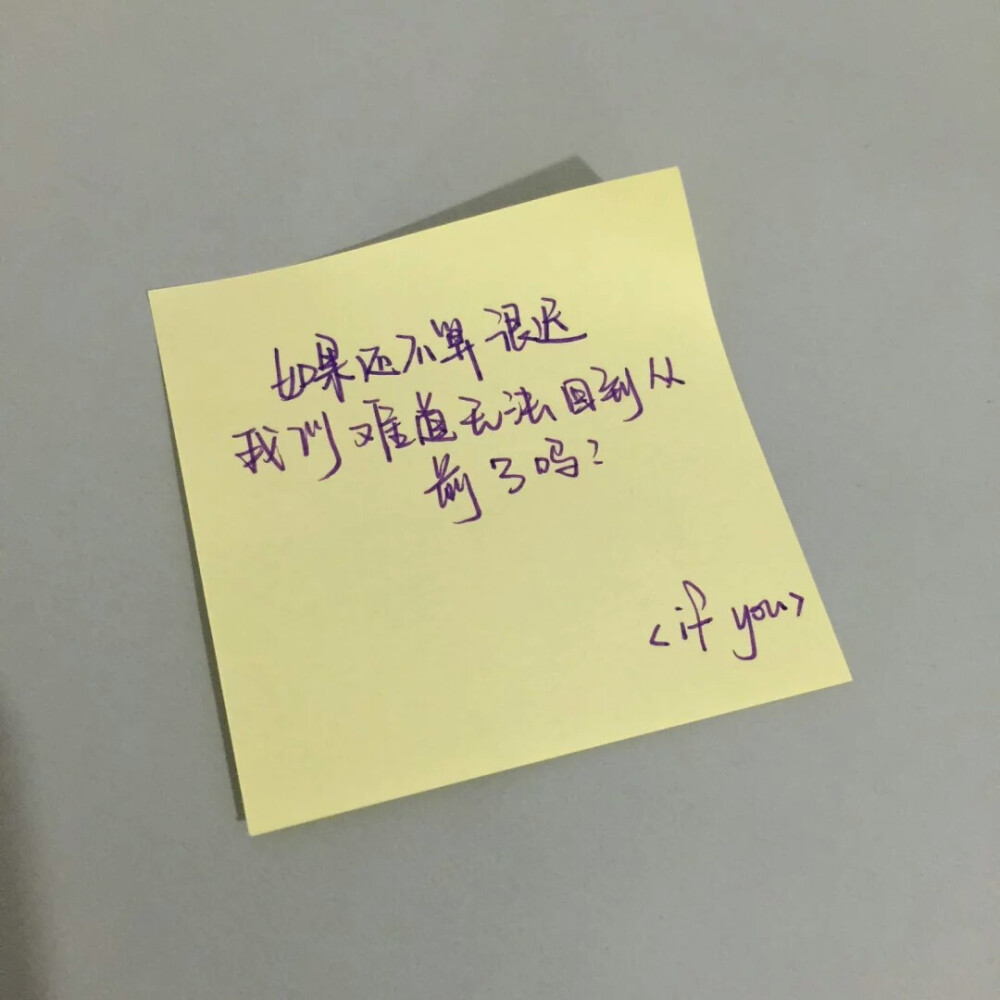 如果还不算很迟
我们难道无法回到从
前了吗?
<if you>